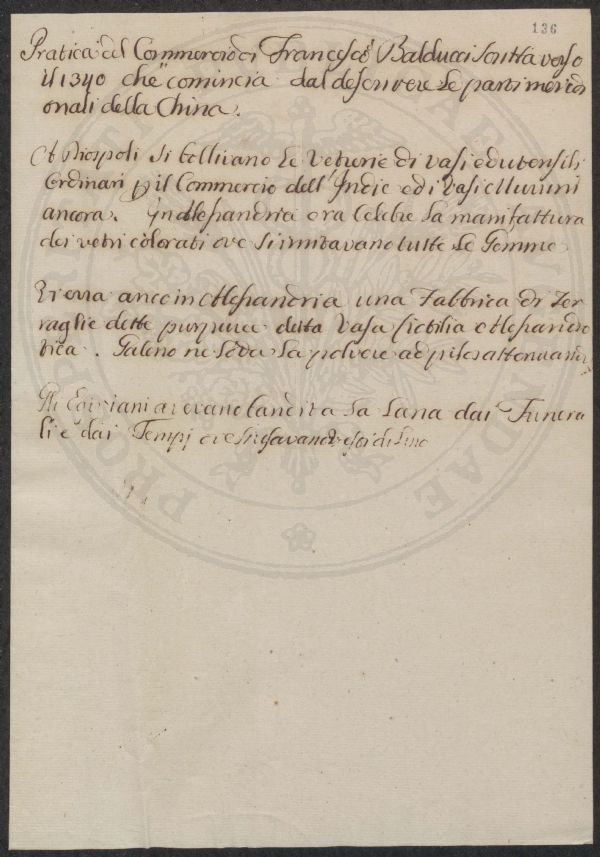 136
Pratica del Commercio di Francesco Balducci scritta verso
il 1340 che comincia dal descrivere le parti meridi
onali della China.
A Diospoli si bollivano le vetrerie di vasi ed utensili
Ordinari p il Commercio dell'Indie ed i Vasi Murrini
ancora. In Alessandria era Celebre la manifattura
dei vetri colorati ove si imitavano tutte le Gemme
Vi era anco in Alessandria una Fabbrica di Ter
raglie dette purpuree detta Vasa fictilia Alessandri
. Galeno ne loda la polvere ad pilos attenuandos
Gli Egiziani avevano bandita la Lana dai Funera
li e dai Tempj ove si usavano di Lino